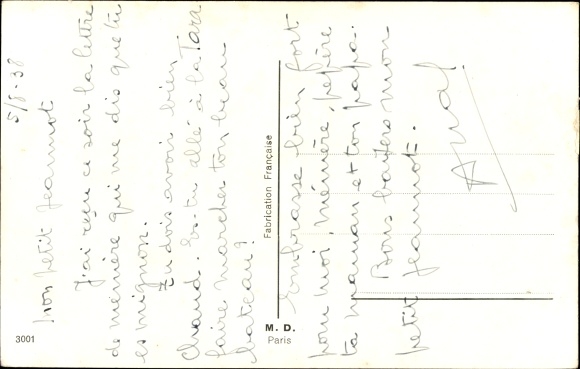 5/8-38
Mon petit Jeannot
J'ai reçu ce soir la lettre
de mémère qui me dis que tu
es mignon.
Tu dois avoir bien
chaud. Es-tu allé à la Tara
faire marcher ton beau
bateau?
Embrasse bien fort
pour moi, mémère, pépère
ta maman et ton papa.
Bons baisers mon
petit Jeannot.
Fabrication Française
M. D.
Paris
3001